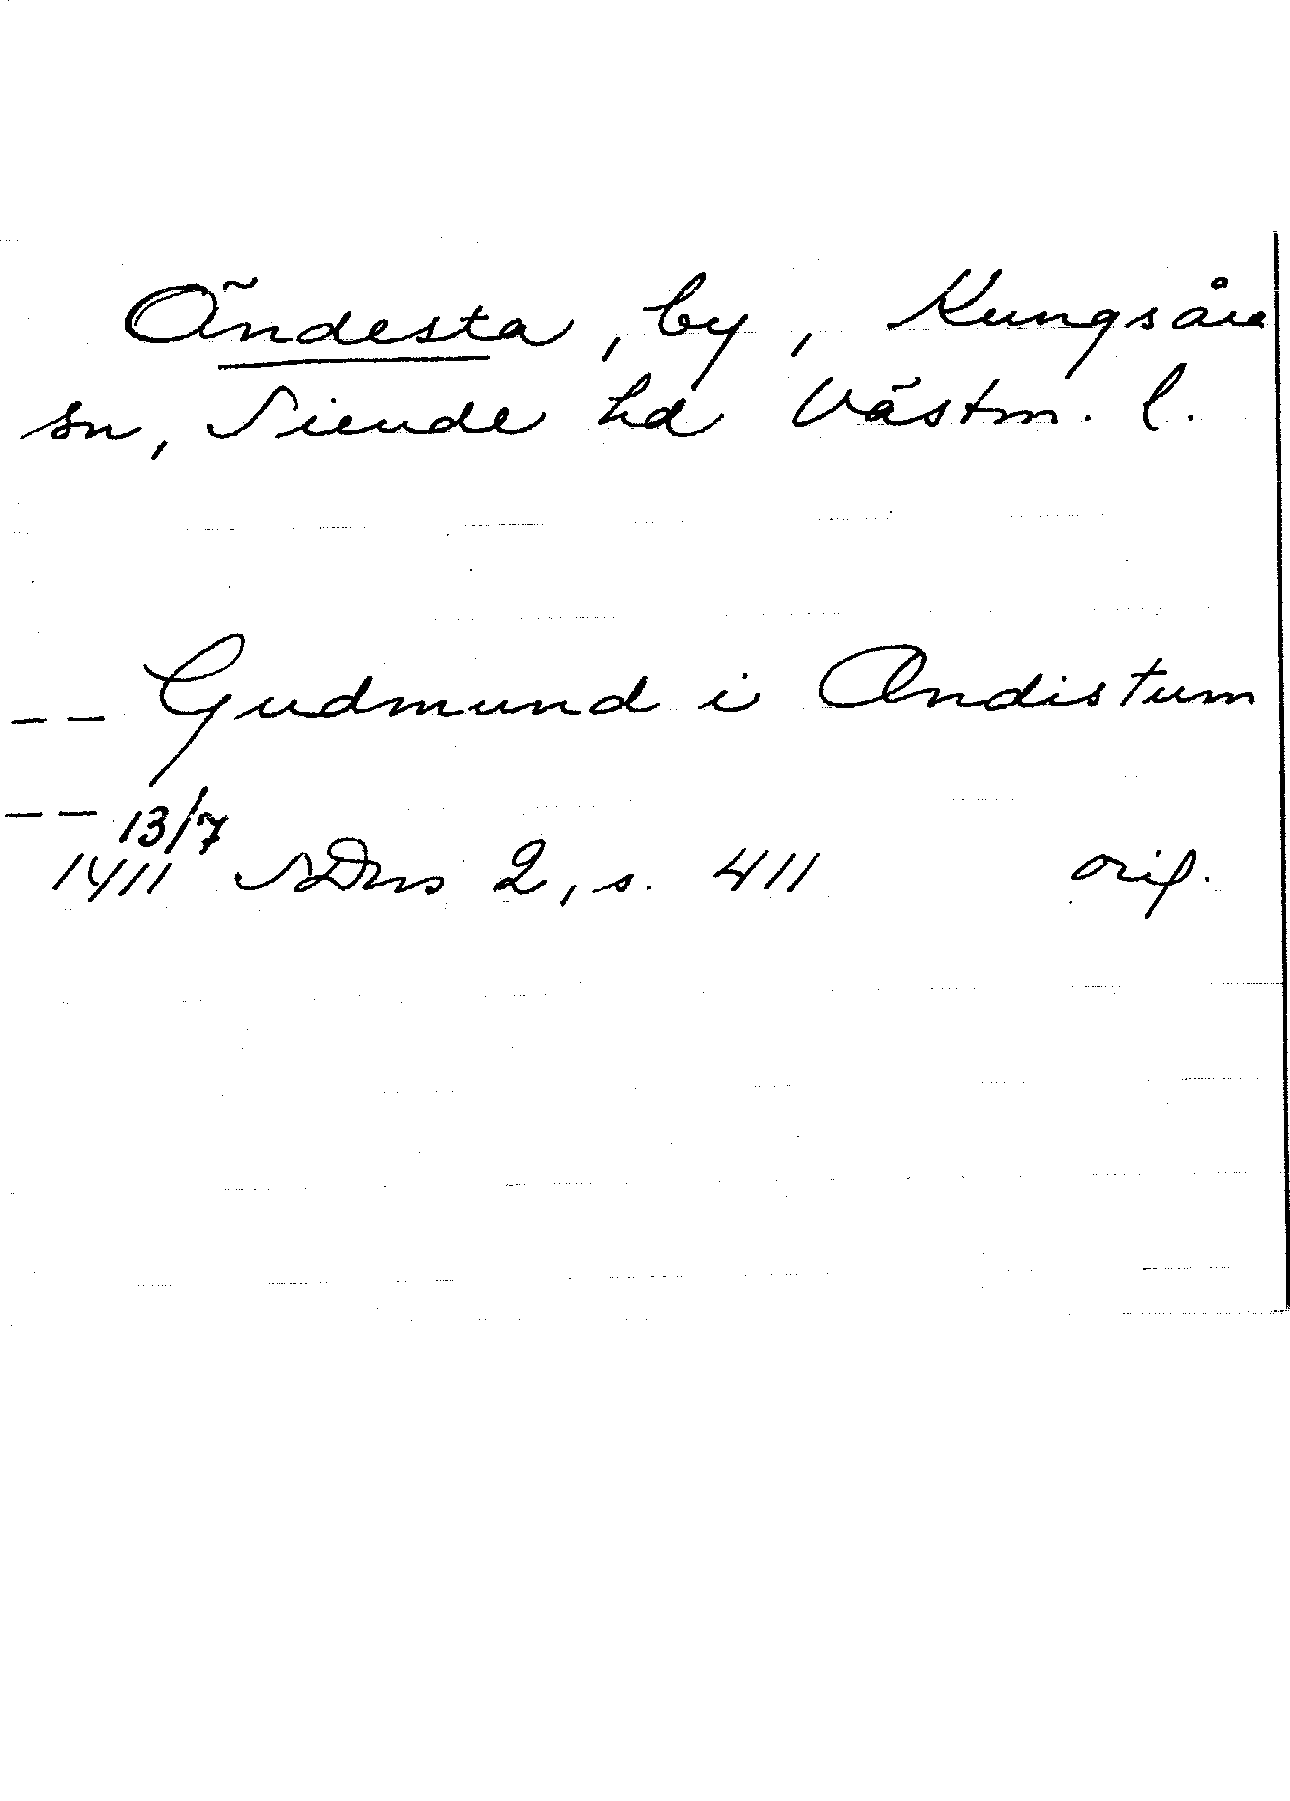 Ändesta, by, Kungsåra
sn, Siende hd Västm. l.
-- Gudmund i Andistum
-- 13/7
1411 SDns 2, s. 411 orig.